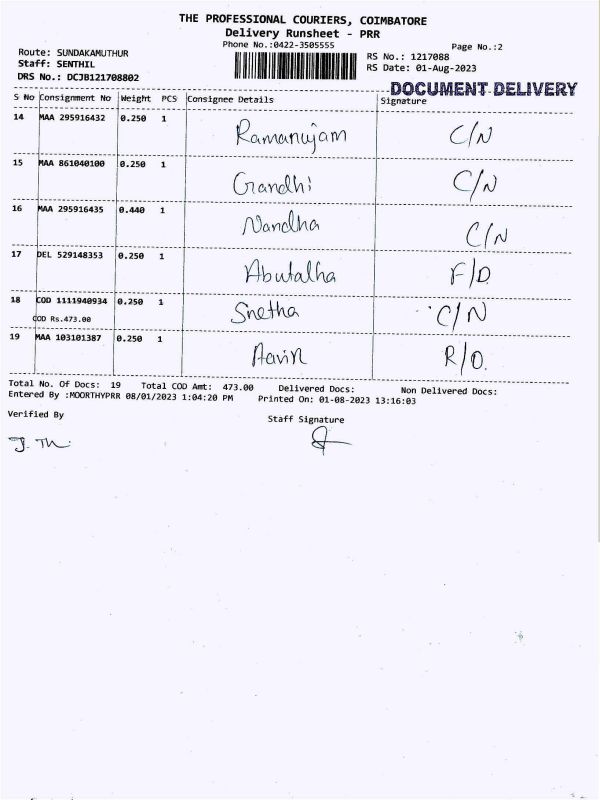 THE PROFESSIONAL COURIERS, COIMBATORE
Delivery Runsheet - PRR
Phone No.:0422-3505555
Page No.:2
Route: SUNDAKAMUTHUR
Staff: SENTHIL
DRS No.: DCJB121708802
RS No.: 1217088
RS Date: 01-Aug-2023
DOCUMENT DELIVERY
S No Consignment No Weight PCS Consignee Details Signature
14 MAA 295916432 0.250 1 Ramanujam C/N
15 MAA 861040100 0.250 1 Gandhi C/N
16 MAA 295916435 0.440 1 Nandha C/N
17 DEL 529148353 0.250 1 Abutalha F/D
18 COD 1111940934 0.250 1 Snetha C/N
COD Rs.473.00
19 MAA 103101387 0.250 1 Aavin R/O.
Total No. Of Docs: 19 Total COD Amt: 473.00 Delivered Docs: Non Delivered Docs:
Entered By :MOORTHYPRR 08/01/2023 1:04:20 PM Printed On: 01-08-2023 13:16:03
Verified By Staff Signature